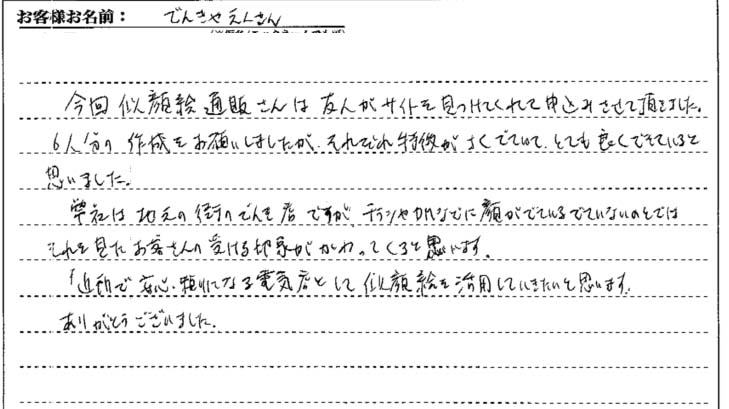 お客様お名前： でんきやえくさん
今回 似顔絵通販さんは 友人がサイトを見つけてくれて申込みさせて頂きました。
6人分の 作成をお願いしましたが、それぞれ特徴が よくでていて、とても 良くできていると
思いました。
弊社は 地元の街のでんき店ですが、チラシやDMなどに顔がでているでていないのとでは
それを見たお客さんの受ける印象が かわってくると思います。
「近所で 安心・頼りになる電気店として 似顔絵を活用していきたいと思います。
ありがとうございました。